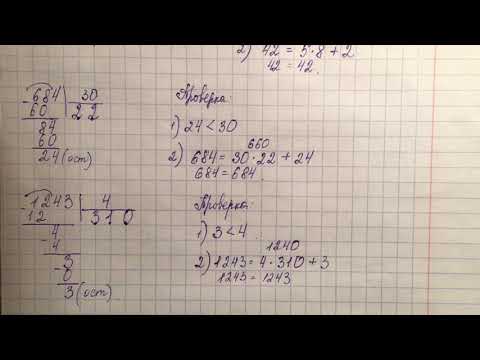 2) 42 = 5·8 + 2
42 = 42.
684 | 30
60 | 22
84
60
24 (ост)
Проверка:
1) 24 < 30
660
2) 684 = 30·22 + 24
684 = 684.
1243 | 4
12 | 310
4
4
3
0
3 (ост)
Проверка:
1) 3 < 4.
1240
2) 1243 = 4·310 + 3
1243 = 1243